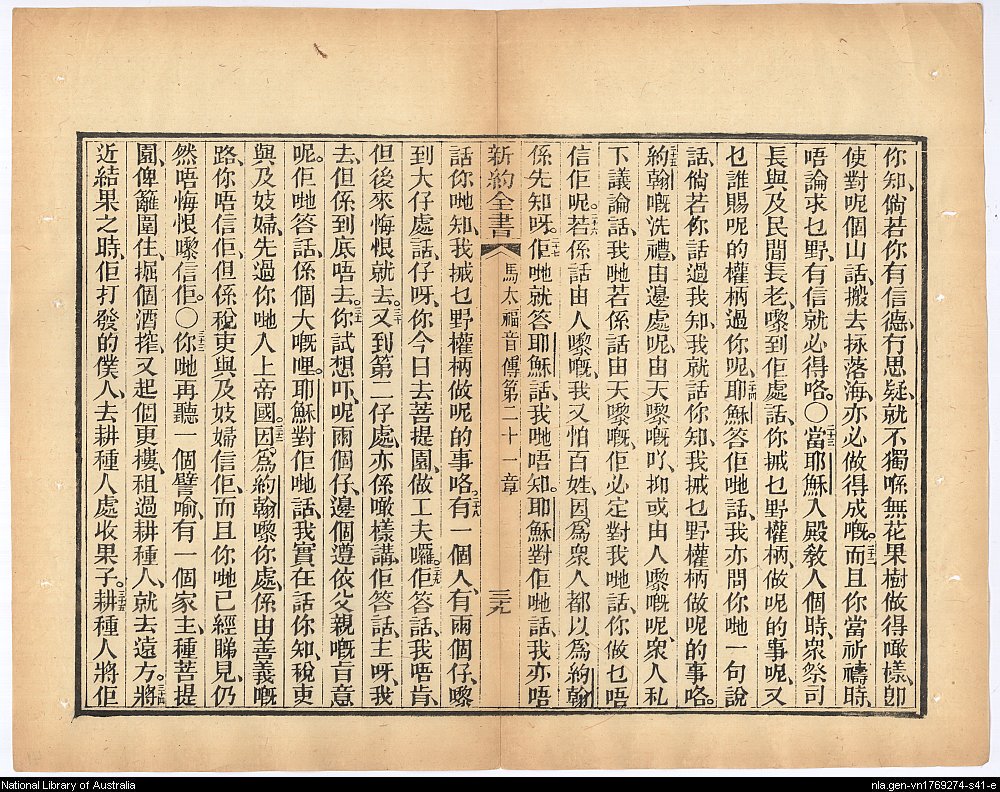 你知、倘若你有信德、冇思疑、就不獨喺無花果樹做得噉樣、卽
使對呢個山話、搬去挆落海、亦必做得成嘅。二十二而且你當祈禱時、
唔論求乜野、有信就必得咯。〇二十三當耶穌入殿敎人個時、衆祭司
長與及民間長老、嚟到佢處話、你㨢乜野權柄、做呢的事呢、又
乜誰賜呢的權柄過你呢、二十四耶穌答佢哋話、我亦問你哋一句說
話、倘若你話過我知、我就話你知、我㨢乜野權柄做呢的事咯。
二十五約翰嘅洗禮、由邊處呢、由天嚟嘅吖、抑或由人嚟嘅呢、衆人私
下議論話、我哋若係話由天嚟嘅、佢必定對我哋話、你做乜唔
信佢呢。二十六若係話由人嚟嘅、我又怕百姓、因爲衆人都以爲約翰
係先知呀。二十七佢哋就答耶穌話、我哋唔知。耶穌對佢哋話、我亦唔
新約全書 馬太福音傳第二十一章 三九
話你哋知、我㨢乜野權柄做呢的事咯。二十八有一個人、有兩個仔、嚟
到大仔處話、仔呀、你今日去菩提園、做工夫囉。二十九佢答話、我唔肯、
但後來悔恨就去。三十又到第二仔處、亦係噉樣講、佢答話、主呀、我
去、但係到底唔去。三十一你試想吓、呢兩個仔、邊個遵依父親嘅旨意
呢。佢哋答話、係個大嘅哩。耶穌對佢哋話、我實在話你知、稅吏
與及妓婦、先過你哋入上帝國。三十二因爲約翰嚟你處、係由善義嘅
路、你唔信佢、但係稅吏與及妓婦信佢、而且你哋已經睇見、仍
然唔悔恨嚟信佢。〇三十三你哋再聽一個譬喻、有一個家主、種菩提
園、俾籬圍住、掘個酒搾、又起個更樓、租過耕種人、就去遠方。三十四將
近結果之時、佢打發的僕人、去耕種人處收果子。三十五耕種人將佢
National Library of Australia
nla.gen-vn1769274-s41-e